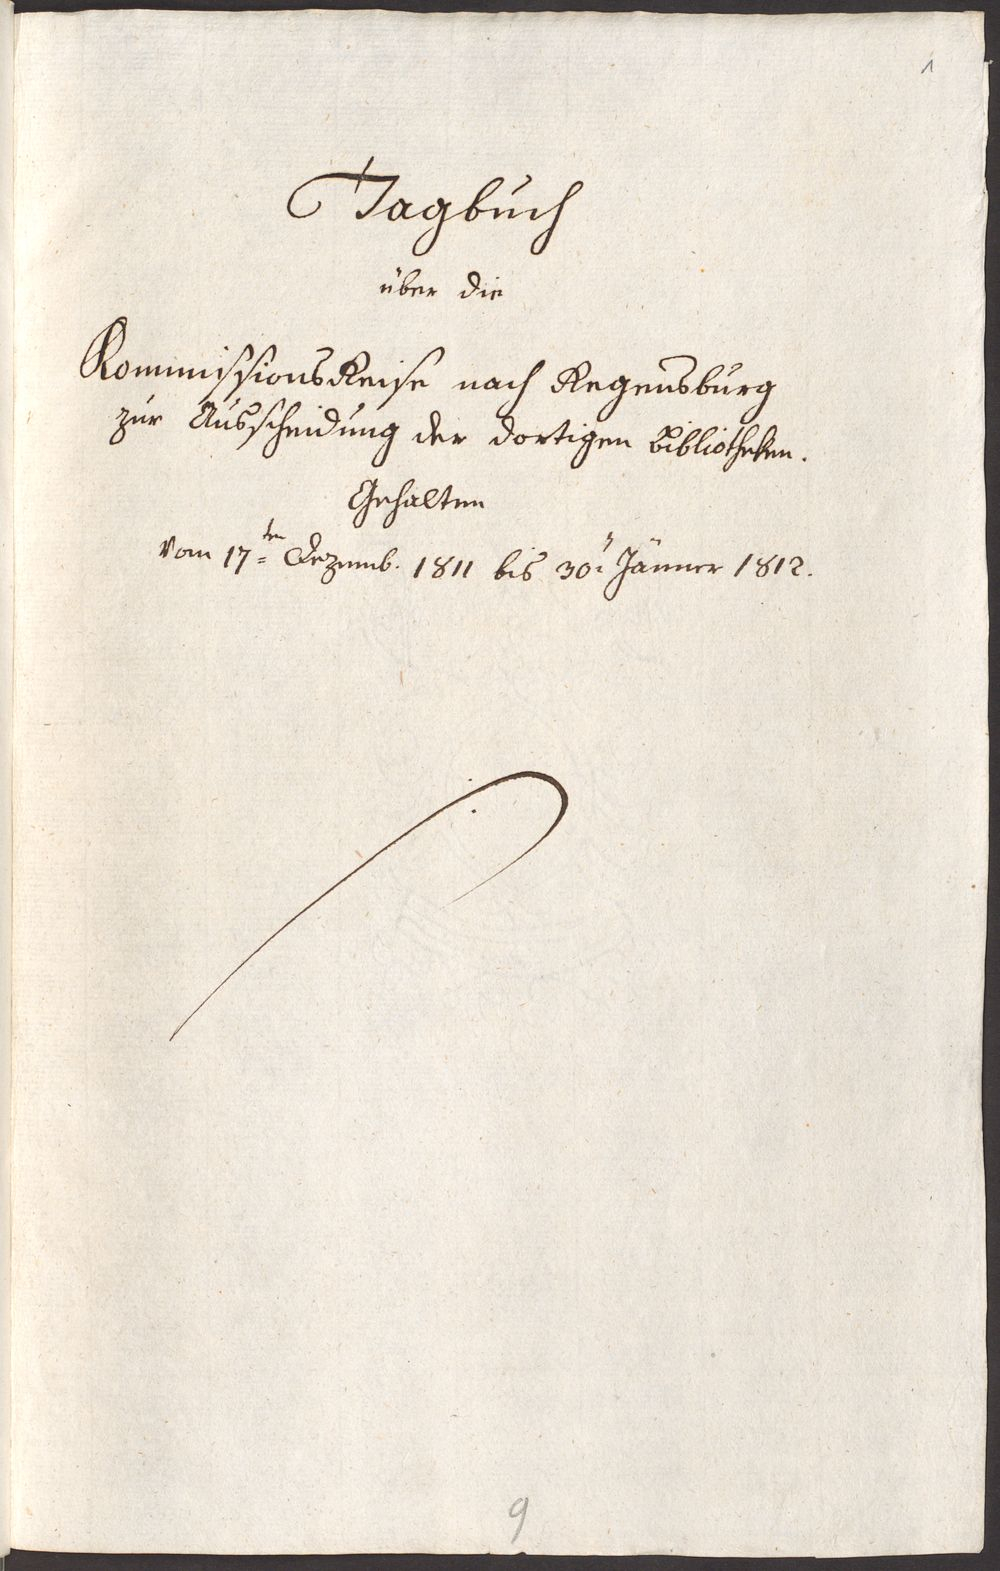 1
Tagbuch
über die
KommissionsReise nach Regensburg
zur Ausscheidung der dortigen Bibliotheken.
Gehalten
vom 17ten Dezemb. 1811 bis 30 Jänner 1812.
9